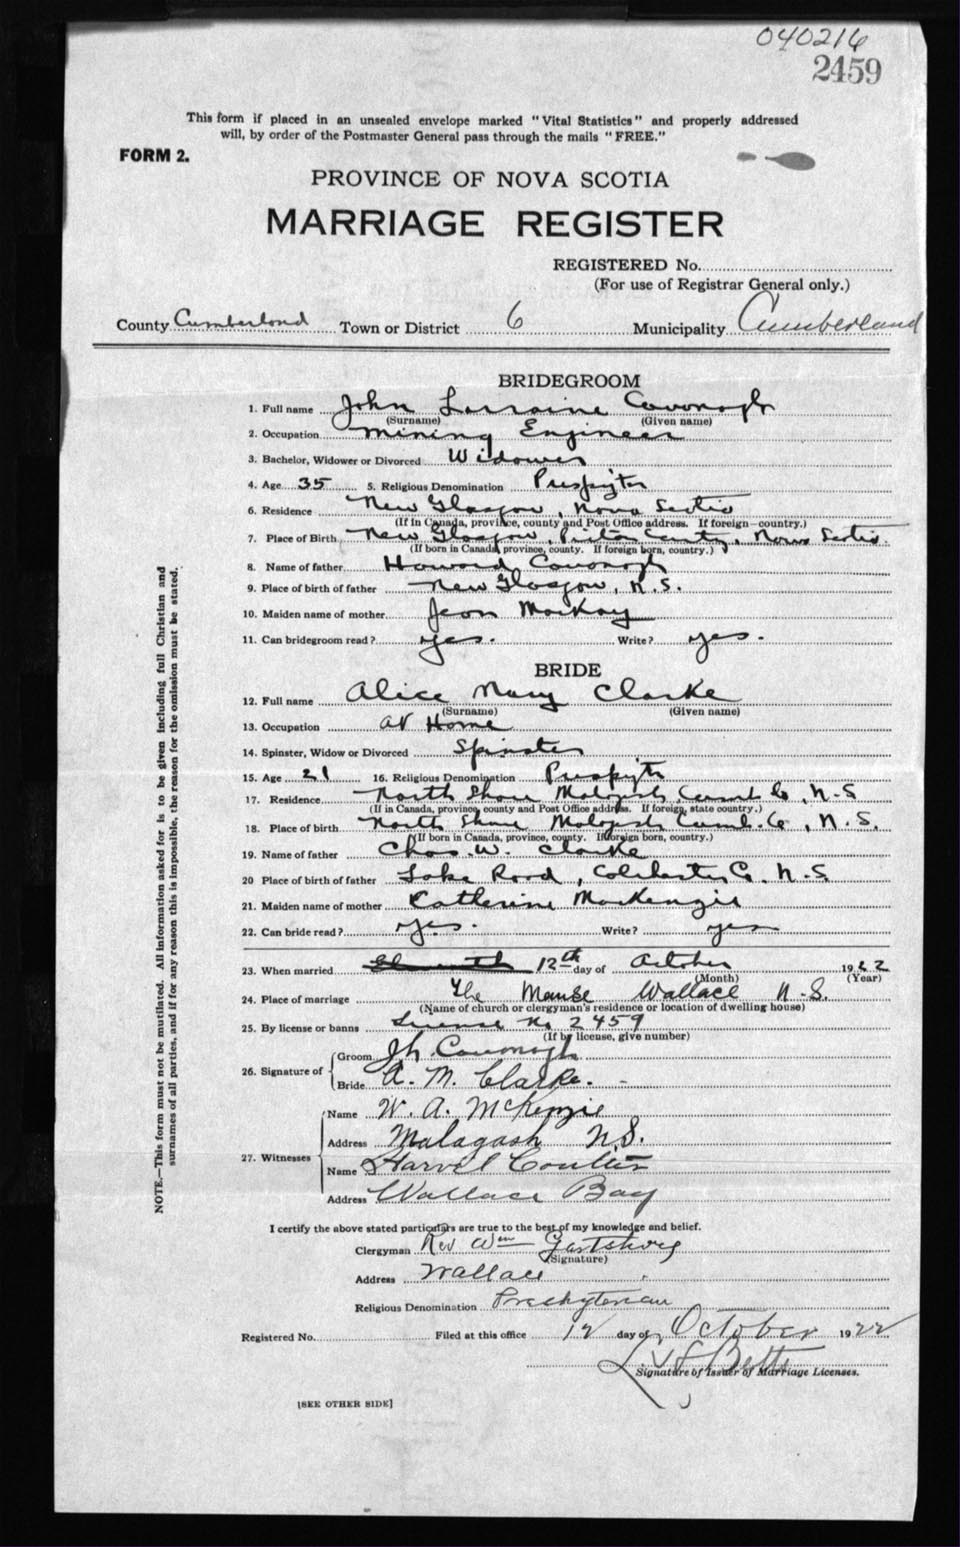 040216
2459
This form if placed in an unsealed envelope marked "Vital Statistics" and properly addressed
will, by order of the Postmaster General pass through the mails "FREE."
FORM 2.
PROVINCE OF NOVA SCOTIA
MARRIAGE REGISTER
REGISTERED No.
(For use of Registrar General only.)
County Cumberland Town or District 6 Municipality Cumberland
BRIDEGROOM
1. Full name John Lorraine Cavanagh
(Surname) (Given name)
2. Occupation Mining Engineer
3. Bachelor, Widower or Divorced Widower
4. Age 35 5. Religious Denomination Presbyter
6. Residence New Glasgow, Nova Scotia
(If in Canada, province, county and Post Office address. If foreign—country.)
7. Place of Birth New Glasgow, Pictou County, Nova Scotia.
(If born in Canada, province, county. If foreign born, country.)
8. Name of father Howard Cavanagh
9. Place of birth of father New Glasgow, N.S.
10. Maiden name of mother Jean MacKay
11. Can bridegroom read? yes. Write? yes.
BRIDE
12. Full name Alice Mary Clarke
(Surname) (Given name)
13. Occupation at Home
14. Spinster, Widow or Divorced Spinster
15. Age 21 16. Religious Denomination Presbyter
17. Residence North Shore Malagash, Cumb Co, N.S
(If in Canada, province, county and Post Office address. If foreign, state country.)
18. Place of birth North Shore Malagash Cumb. Co, N.S.
(If born in Canada, province, county. If foreign born, country.)
19. Name of father Chas. W. Clarke
20 Place of birth of father Lake Road, Colchester Co. N.S
21. Maiden name of mother Katherine MacKenzie
22. Can bride read? yes. Write? yes
23. When married Eleventh 12th day of October 1922
(Month) (Year)
24. Place of marriage The Manse Wallace N.S.
(Name of church or clergyman's residence or location of dwelling house)
25. By license or banns License No 2459
(If by license, give number)
26. Signature of Groom JL Cavanagh
Bride A. M. Clarke.
27. Witnesses Name W. A. McKenzie
Address Malagash N.S.
Name Harvel Coulter
Address Wallace Bay
I certify the above stated particulars are true to the best of my knowledge and belief.
Clergyman Rev Wm
(Signature)
Address Wallace
Religious Denomination Presbyterian
Registered No. Filed at this office 12 day of October 1922
Betts
Signature of Issuer of Marriage Licenses.
[SEE OTHER SIDE]
NOTE.—This form must not be mutilated. All information asked for is to be given including full Christian and
surnames of all parties, and if for any reason this is impossible, the reason for the omission must be stated.